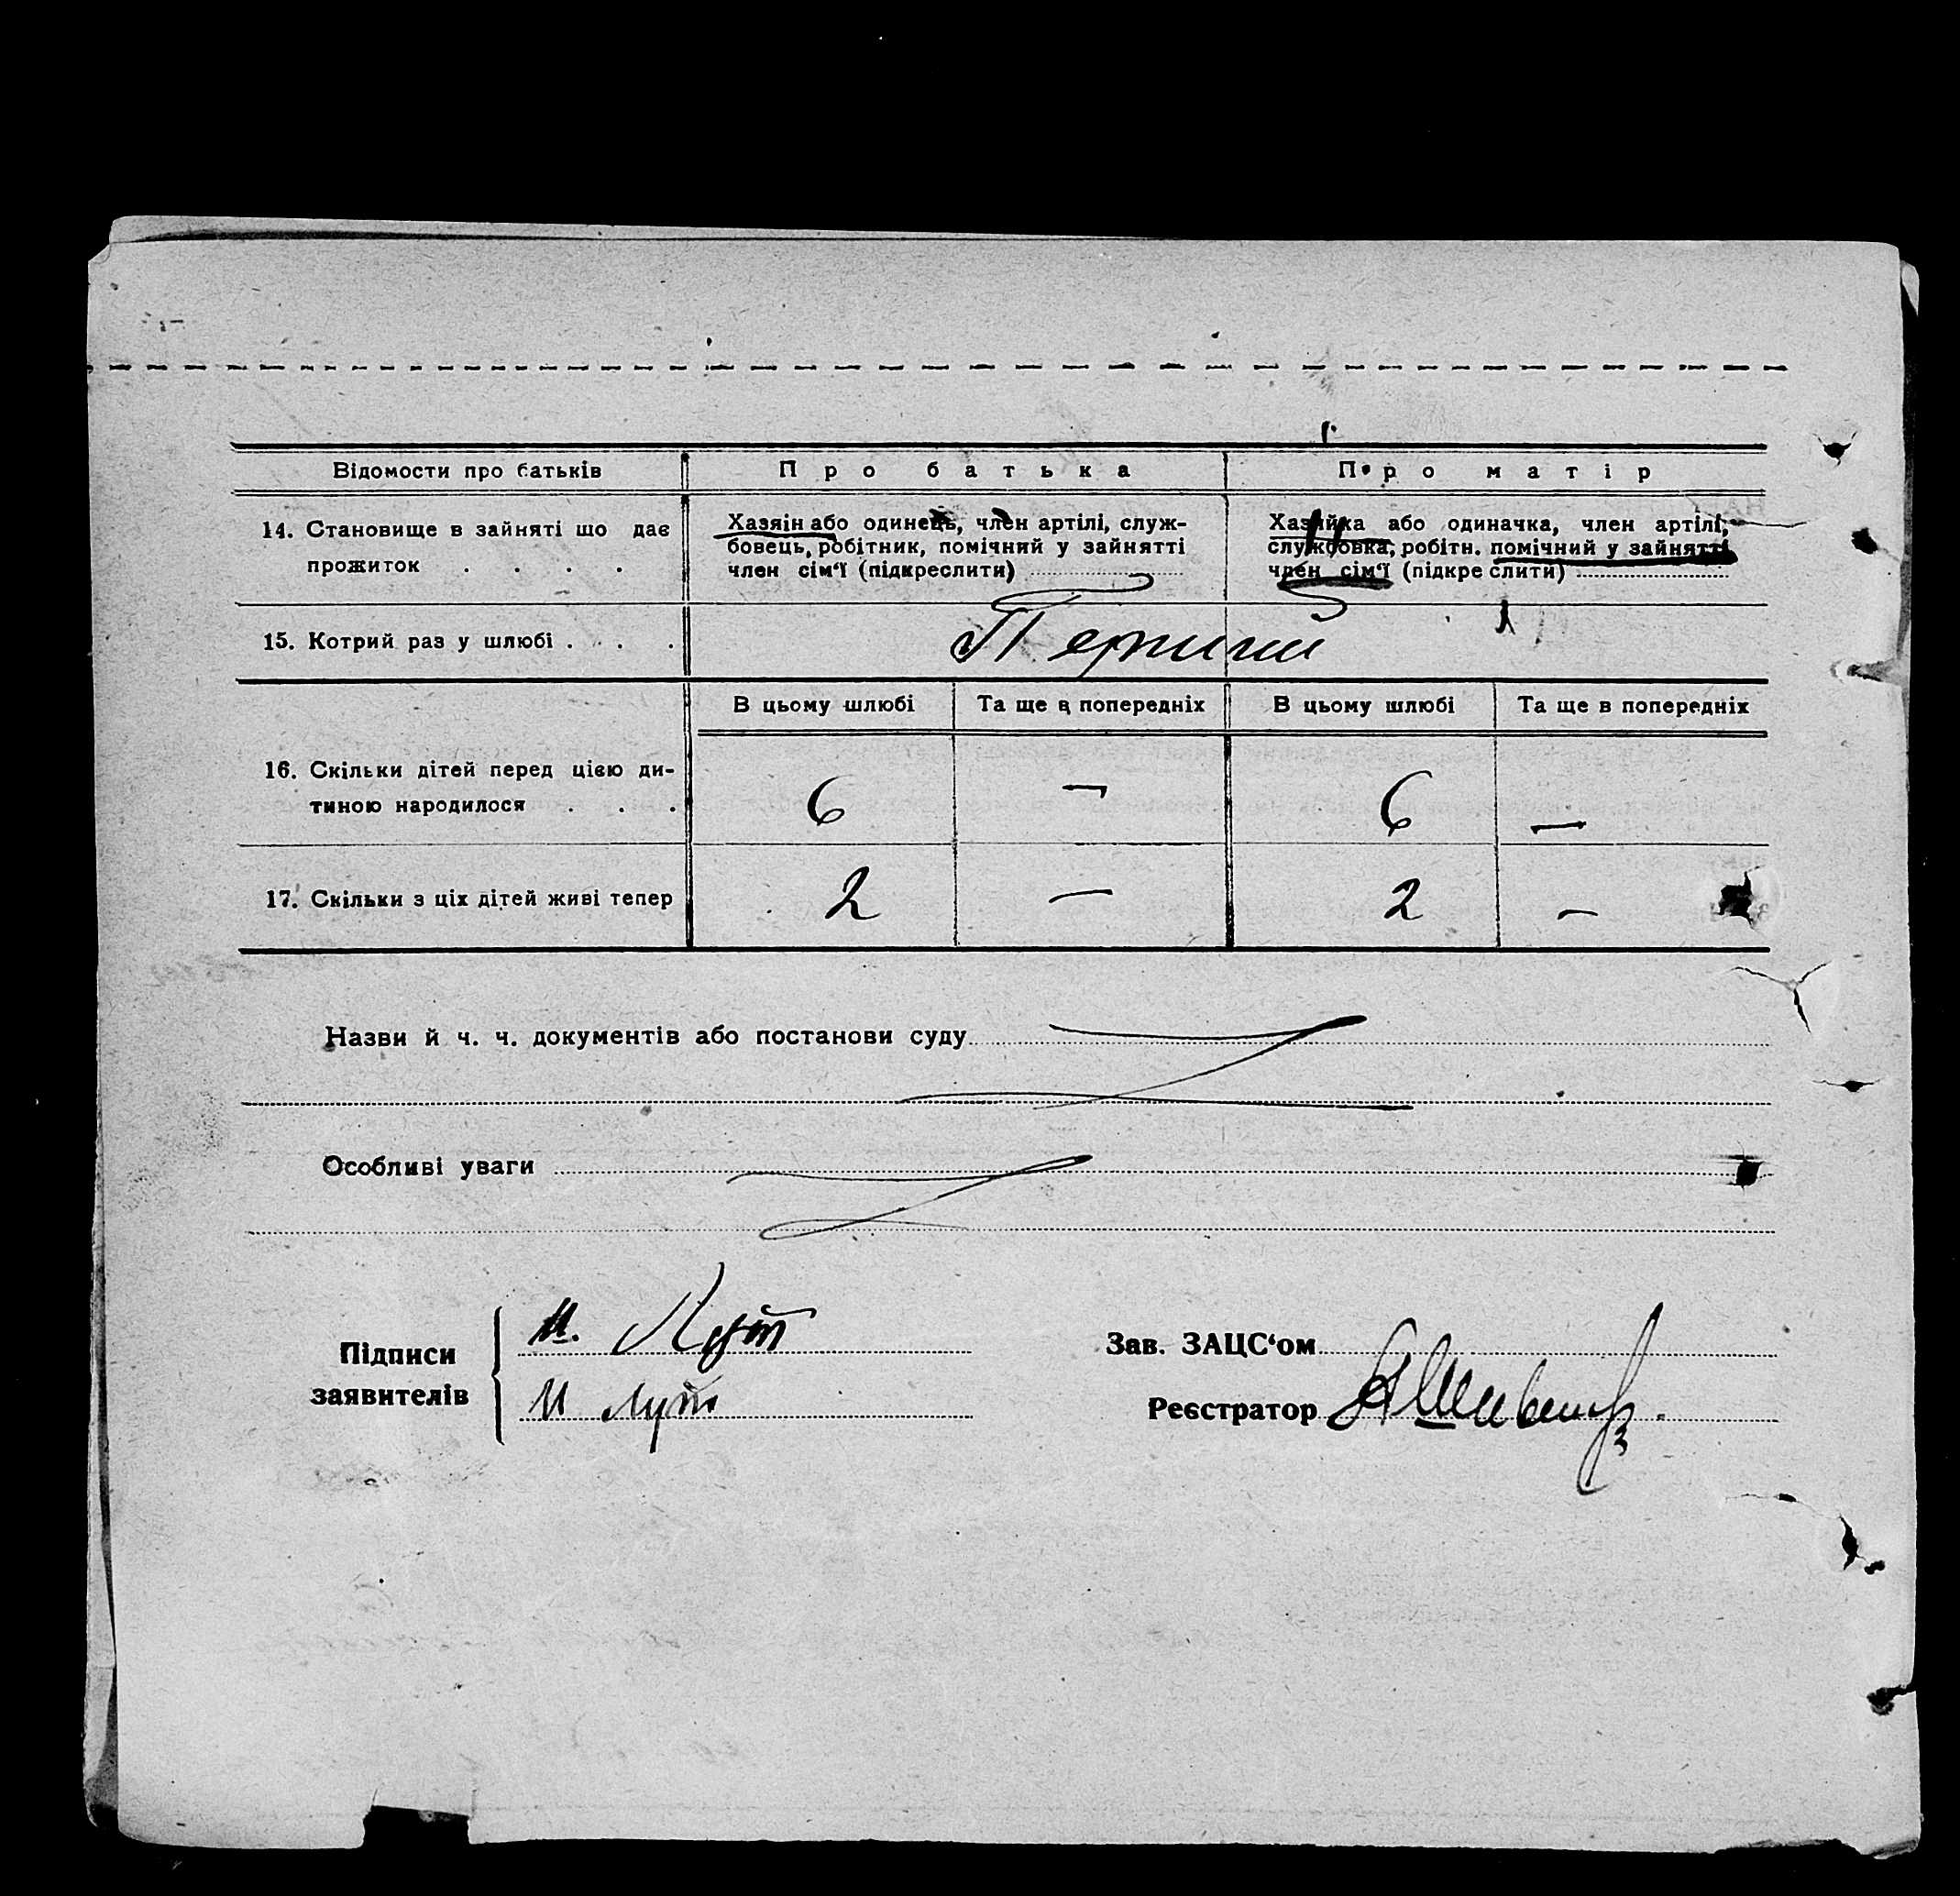 Відомости про батьків
Про батька
Про матір
14. Становище в зайняті що дає
прожиток . . . .
Хазяїн або одинець, член артілі, служ-
бовець, робітник, помічний у зайнятті
член сім'ї (підкреслити)
Хазяйка або одиначка, член артілі,
службовка, робітн. помічний у зайнятті
член сім'ї (підкреслити)
15. Котрий раз у шлюбі . . .
Первий
В цьому шлюбі
Та ще в попередніх
В цьому шлюбі
Та ще в попередніх
16. Скільки дітей перед цією ди-
тиною народилося . . .
6 — 6 —
17. Скільки з ціх дітей живі тепер
2 — 2 —
Назви й ч. ч. документів або постанови суду
Особливі уваги
Підписи
заявителів
И.
И
Зав. ЗАЦС'ом
Реєстратор